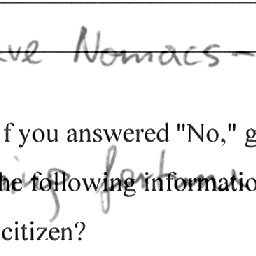 ve Nomacs-
f you answered "No," g
he following informatio
citizen?